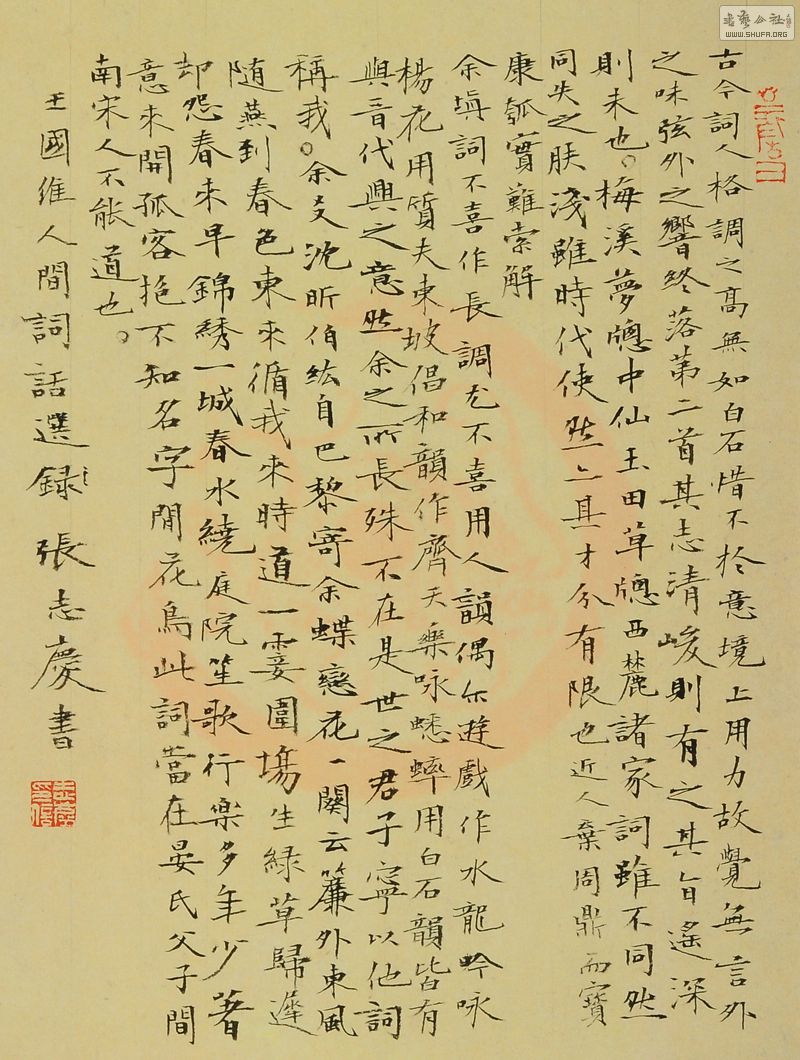 古今詞人格調之高無如白石惜不於意境上用力故覺無言外
之味弦外之響終落第二首其志清峻則有之其旨遙深
則未也。梅溪夢牕中仙玉田草牕西麓諸家詞雖不同然
同失之肤淺雖時代使然亦其才分有限也近人棄周鼎而寶
康瓠實難索解
余填詞不喜作長調尤不喜用人韻偶尔遊戲作水龍吟咏
楊花用質夫東坡倡和韻作齊天樂咏蟋蟀用白石韻皆有
與晉代興之意然余之所長殊不在是世之君子寧以他詞
稱我。余友沈昕伯紘自巴黎寄余蝶戀花一闋云簾外東風
隨燕到春色東來循我來時道一霎圍場生綠草歸遲
却怨春來早錦綉一城春水繞庭院笙歌行樂多年少著
意來開孤客抱不知名字閒花鳥此詞當在晏氏父子間
南宋人不能道也。
王國維人間詞話選録張志慶書
书艺公社
WWW.SHUFA.ORG